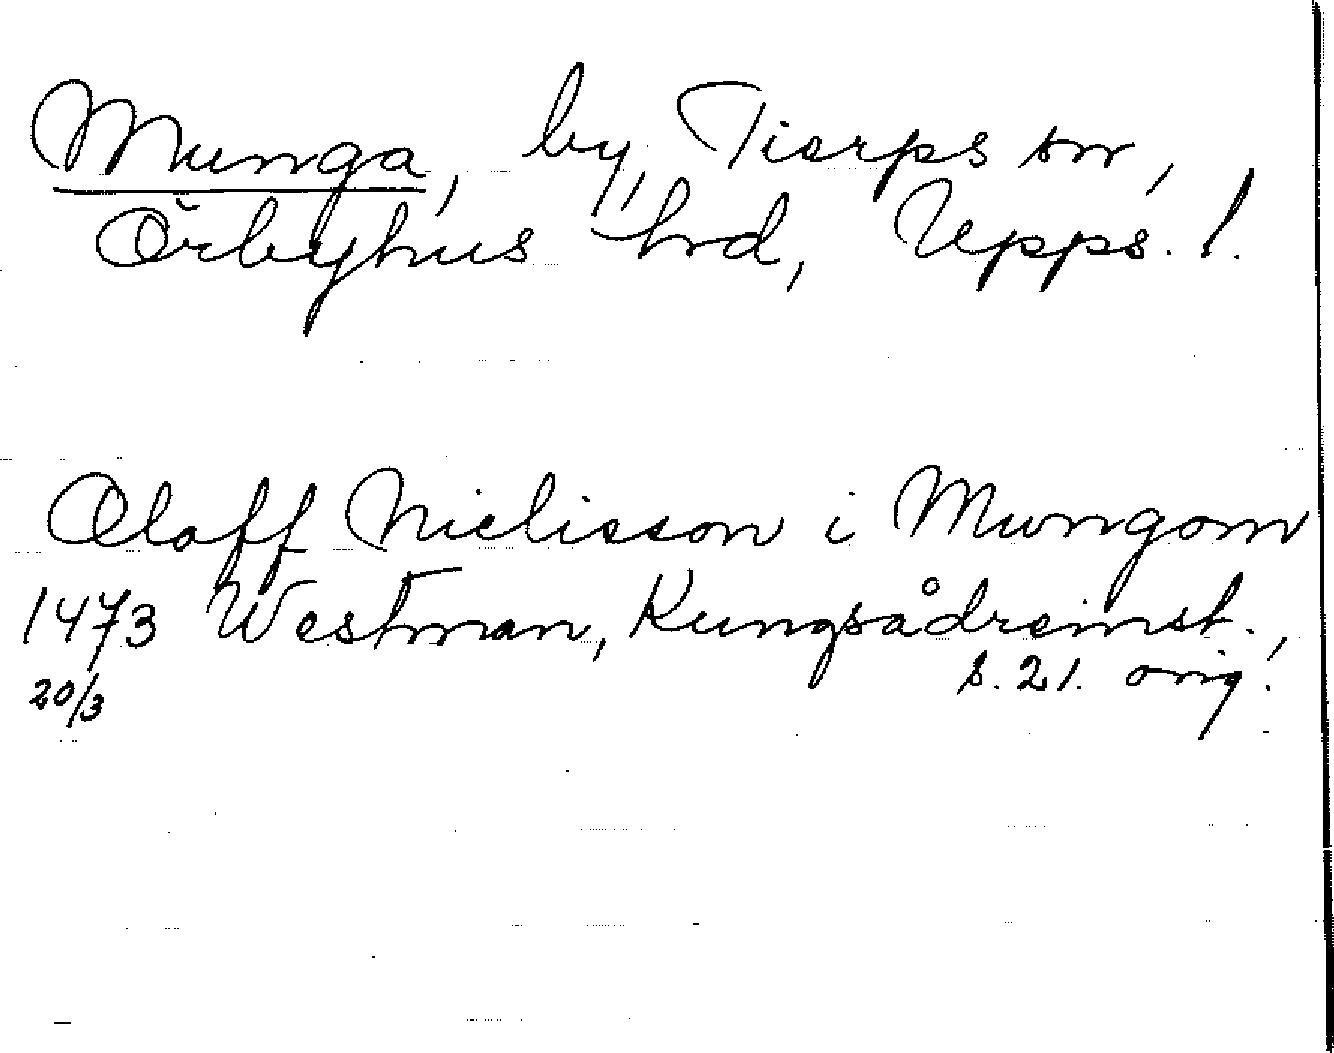 Munga, by, Tierps sn,
Örbyhus hd, Upps. l.
Oloff Nielisson i Mungom
1473 Westman, Kungsådreinst.,
20/3 s. 21. orig.